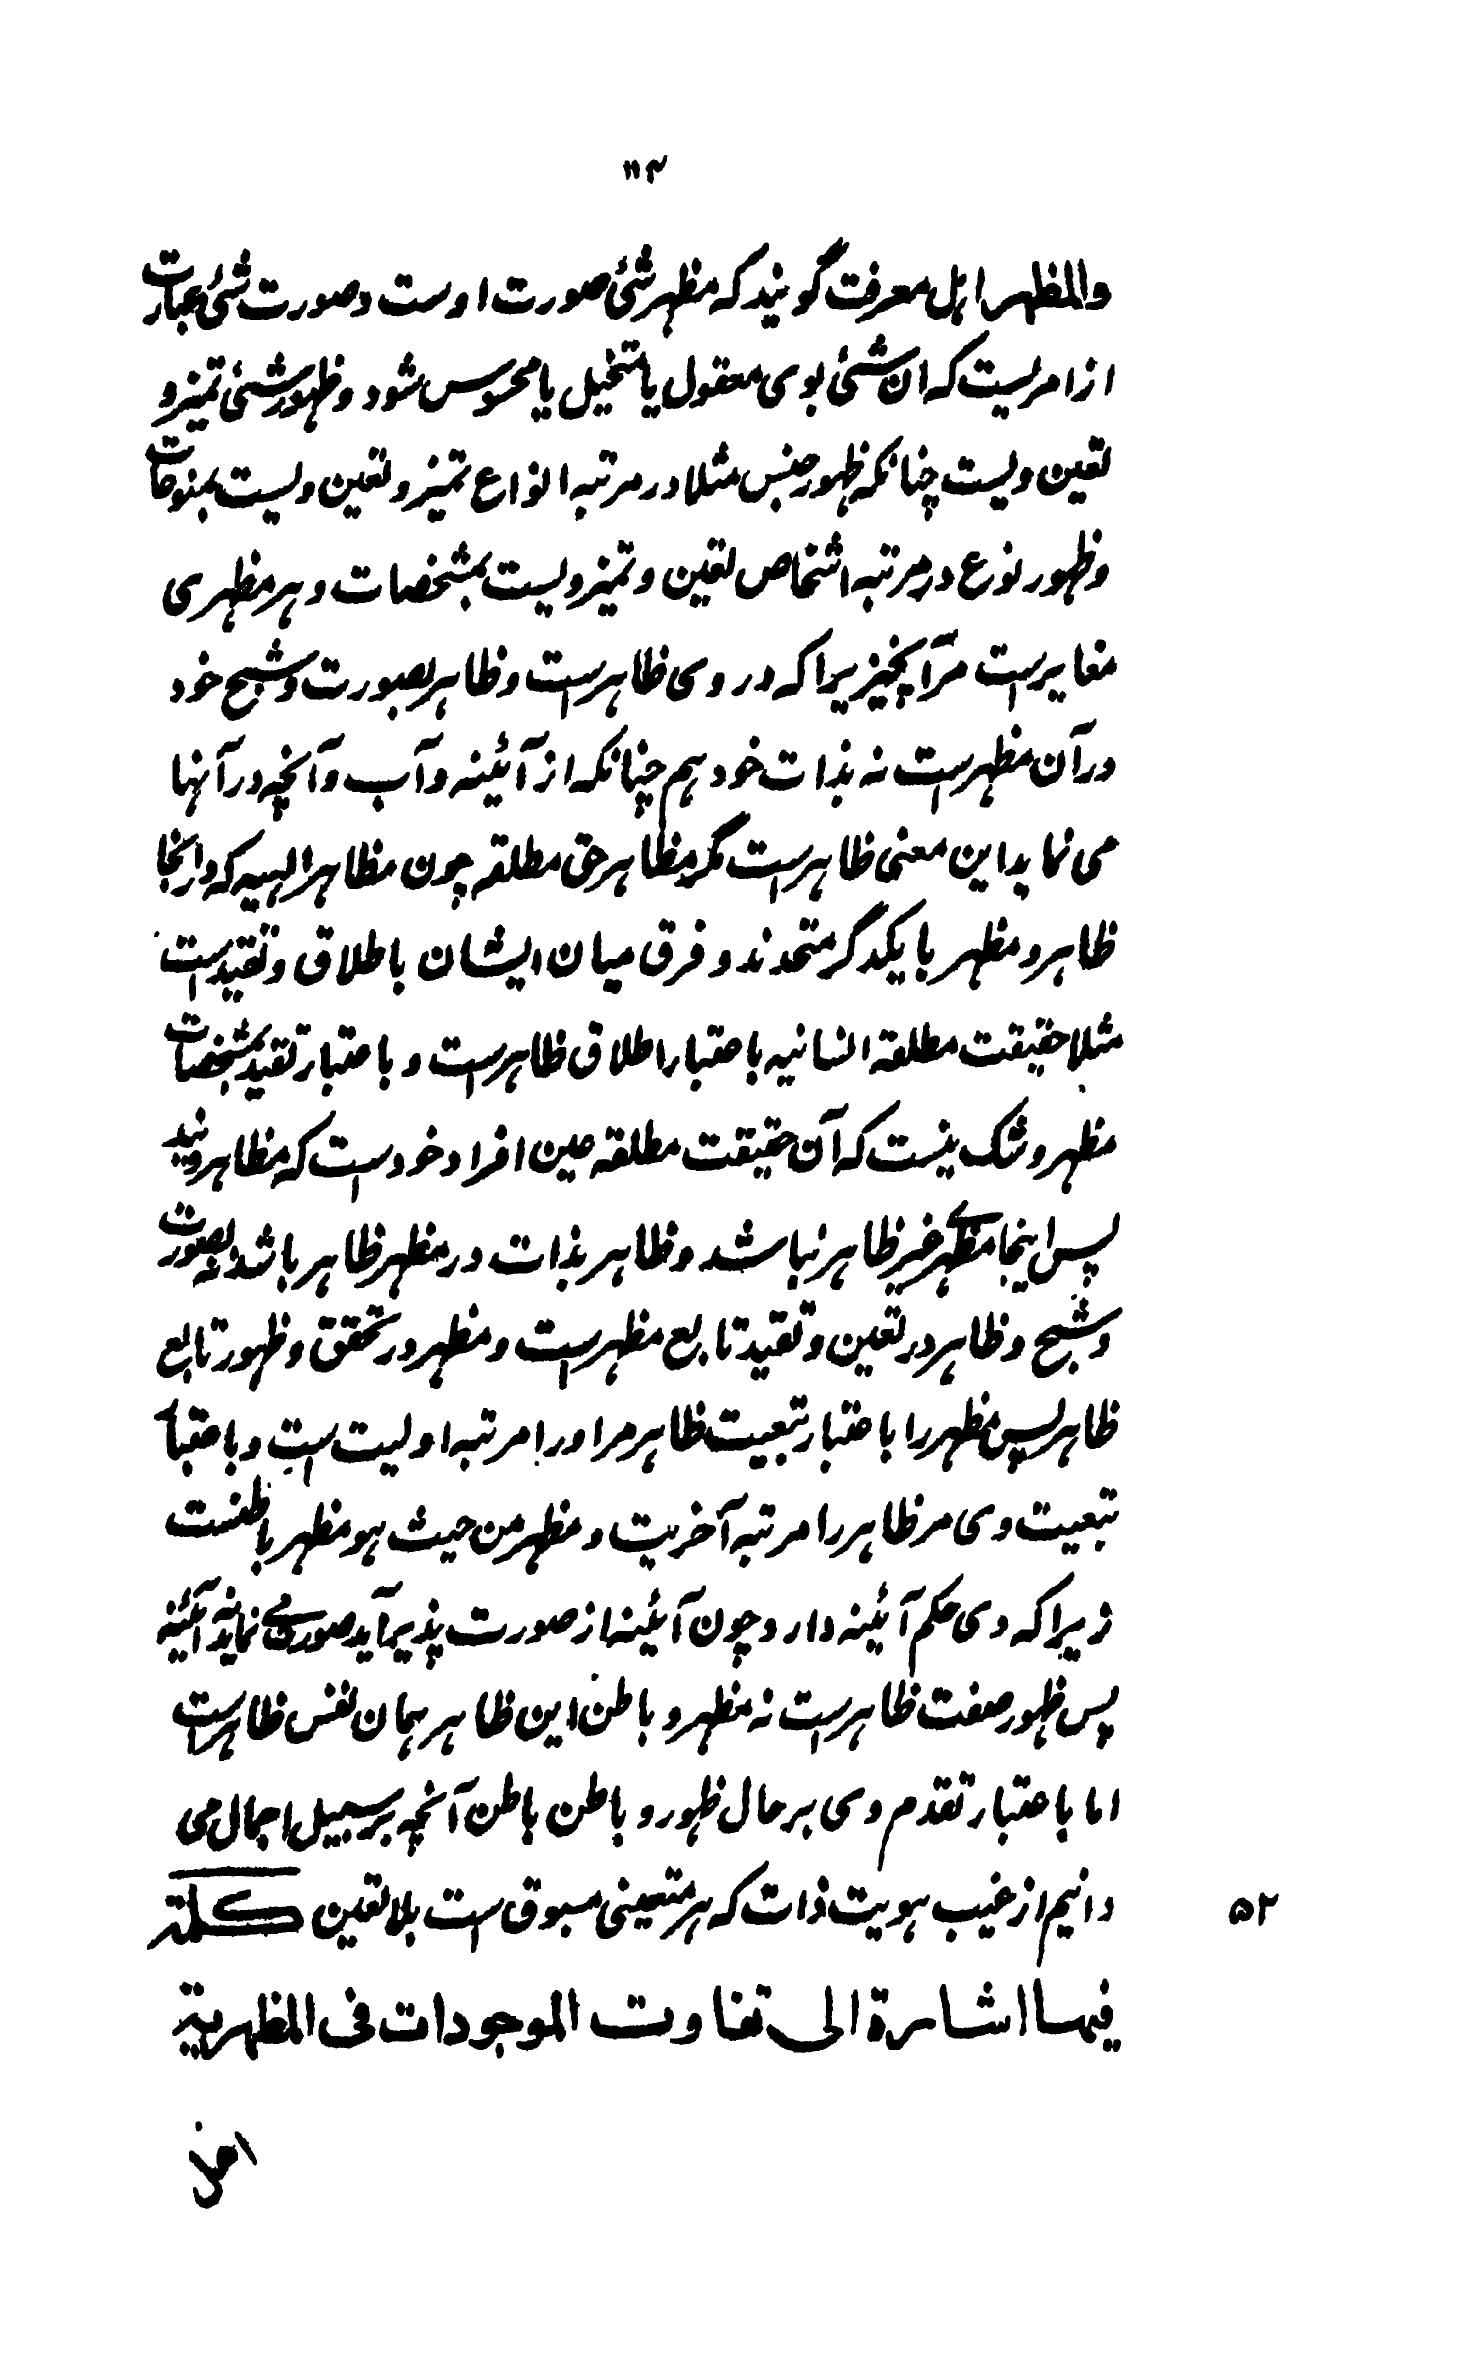 ۱۱۴
والمظهر اہل معرفت گویند کہ مظہر شئ صورت اوست وصورت شئ عبارت
از امریست کہ ان شئ بوی معقول یا متخیل یا محسوس شود وظہور شئ تمیز و
تعین ویست چنانکہ ظہور جنس مثلا در مرتبہ انواع تمیز وتعین ویست بمنوعات
وظہور نوع در مرتبہ اشخاص تعین وتمیز ویست بمشخصات وہر مظہری
مغایرست مر آنچیزیرا کہ در وی ظاہرست وظاہر بصورت وشبح خود
در آن مظہرست نہ بذات خود ہم چنانکہ از آئینہ وآب وآنچہ در آنہا
می نماید این معنی ظاہرست مگر مظاہر حق مطلقہ چون مظاہر الہیہ کہ در آنجا
ظاہر ومظہر با یکدگر متحدند وفرق میان ایشان باطلاق وتقیدست
مثلا حقیقت مطلقہ انسانیہ باعتبار اطلاق ظاہرست وباعتبار تقید بمشخصات
مظہر وشک نیست کہ آن حقیقت مطلقہ عین افراد خودست کہ مظاہر ویند
پس اینجا مظہری غیر ظاہر نباشد وظاہر بذات در مظہر ظاہر باشد نہ بصورت
وشبح وظاہر در تعین وتقید تابع مظہرست ومظہر در تحقق وظہور تابع
ظاہر پس مظہر را باعتبار تبعیت ظاہر مر اورا مرتبہ اولیت است وباعتبار
تبعیت وی مر ظاہر را مرتبہ آخریت ومظہر من حیث ہو مظہر باطنست
زیرا کہ وی حکم آئینہ دارد وچون آئینہ از صورت پذیر آید صورت می نماید نہ آئینہ
پس ظہور صفت ظاہرست نہ مظہر وباطن این ظاہر ہمان نفس ظاہرست
اما باعتبار تقدم وی بر حال ظہور وباطن باطن آنچہ بر سبیل اجمال می
دانیم از غیب ہویت ذات کہ ہر متعینی مسبوق ست بلا تعین کلمة
۵۲
فیہا اشارة الی تفاوت الموجودات فی المظهریة